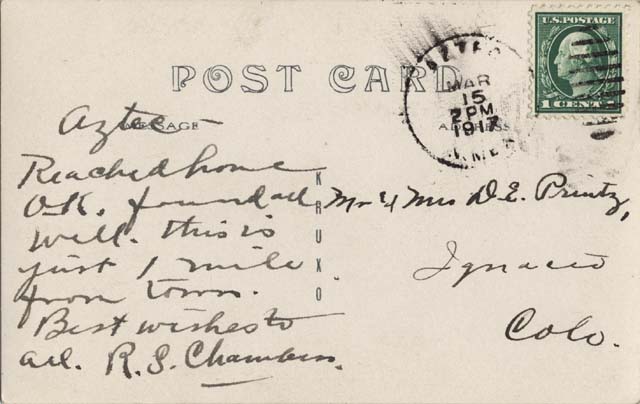 U.S. POSTAGE
1 CENT
POST CARD
AZTEC
MAR
15
2 PM
1917
N. MEX.
MESSAGE
ADDRESS
KRUXO
Aztec—
Reached home
O.K. found all
well. this is
just 1 mile
from town.
Best wishes to
all. R.S. Chambers.
Mr & Mrs D.E. Printz,
Ignacio
Colo.